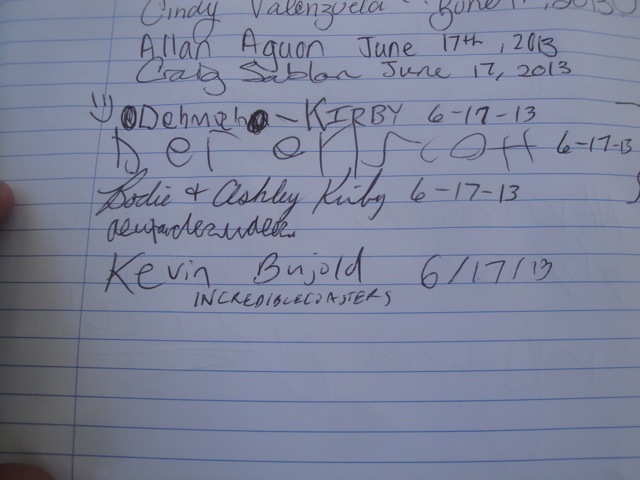 Cindy Valenzuela June 17, 2013
Allan Aguon June 17th, 2013
Craig Sablan June 17, 2013
- KIRBY 6-17-13
6-17-13
Bodie + Ashley Kirby 6-17-13
Kevin Bujold 6/17/13
INCREDIBLECOASTERS